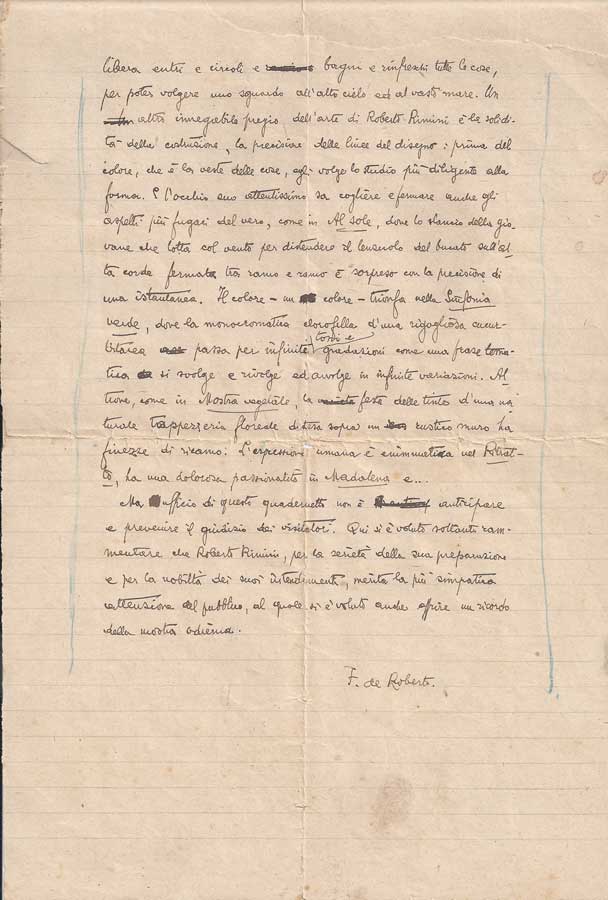 libera entri e circoli e bagni e rinfreschi tutte le cose,
per poter volgere uno sguardo all'alto cielo ed al vasto mare. Un
altro innegabile pregio dell'arte di Roberto Rimini è la solidi-
tà della costruzione, la precisione delle linee del disegno: prima del
colore, che è la veste delle cose, egli volge lo studio più diligente alla
forma. E l'occhio suo attentissimo sa cogliere e fermare anche gli
aspetti più fugaci del vero, come in Al sole, dove lo slancio della gio-
vane che lotta col vento per distendere il lenzuolo del bucato sull'al-
ta corda fermata tra ramo e ramo è sorpreso con la precisione di
una istantanea. Il colore – un colore – trionfa nella Sinfonia
verde, dove la monocromatica clorofilla d'una rigogliosa cucur-
bitacea passa per infinite toni e gradazioni come una frase tema-
tica si svolge e rivolge ed avvolge in infinite variazioni. Al-
trove, come in Mostra vegetale, la festa delle tinte d'una na-
turale tappezzeria floreale distesa sopra un rustico muro ha
finezze di ricamo. L'espressione umana è ammirata nel Ritrat-
to, ha una dolorosa passionalità in Madalena e...
Ma ufficio di questo quadernetto non è anticipare
e prevenire il giudizio dei visitatori. Qui si è voluto soltanto ram-
mentare che Roberto Rimini, per la serietà della sua preparazione
e per la nobiltà dei suoi intendimenti, merita la più simpatica
attenzione del pubblico, al quale si è voluto anche offrire un ricordo
della mostra odierna.
F. de Roberto.